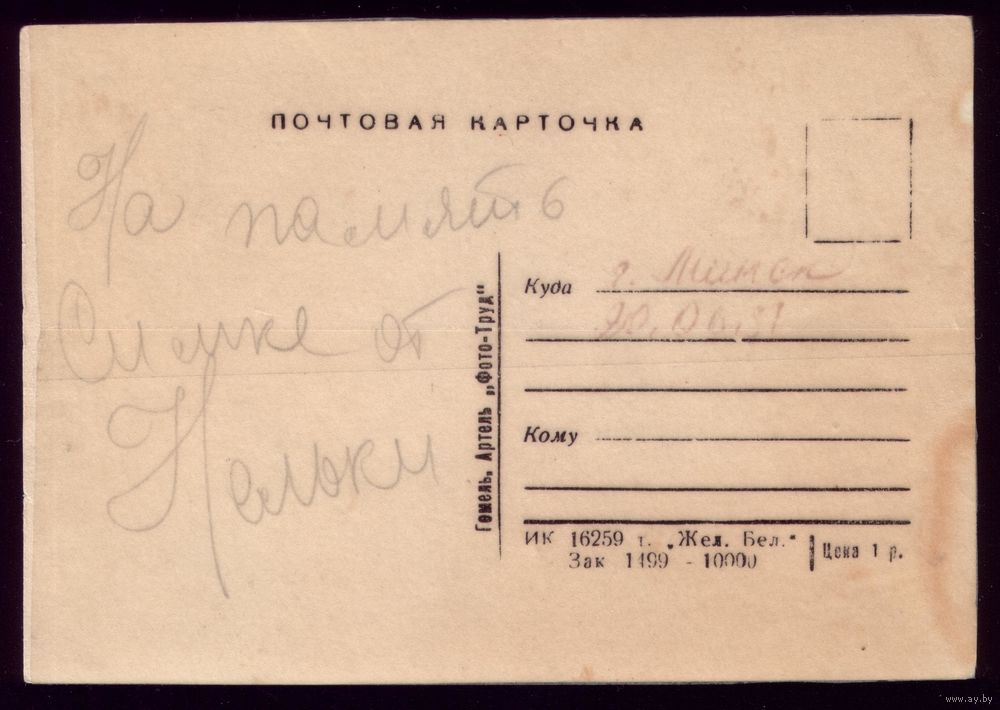 ПОЧТОВАЯ КАРТОЧКА
На память
Симке от
Нельки
Куда г. Минск
Кому
Гомель. Артель „Фото-Труд"
ИК 16259 т. „Жел. Бел."
Зак 1499 - 10000
Цена 1 р.
www.ay.by